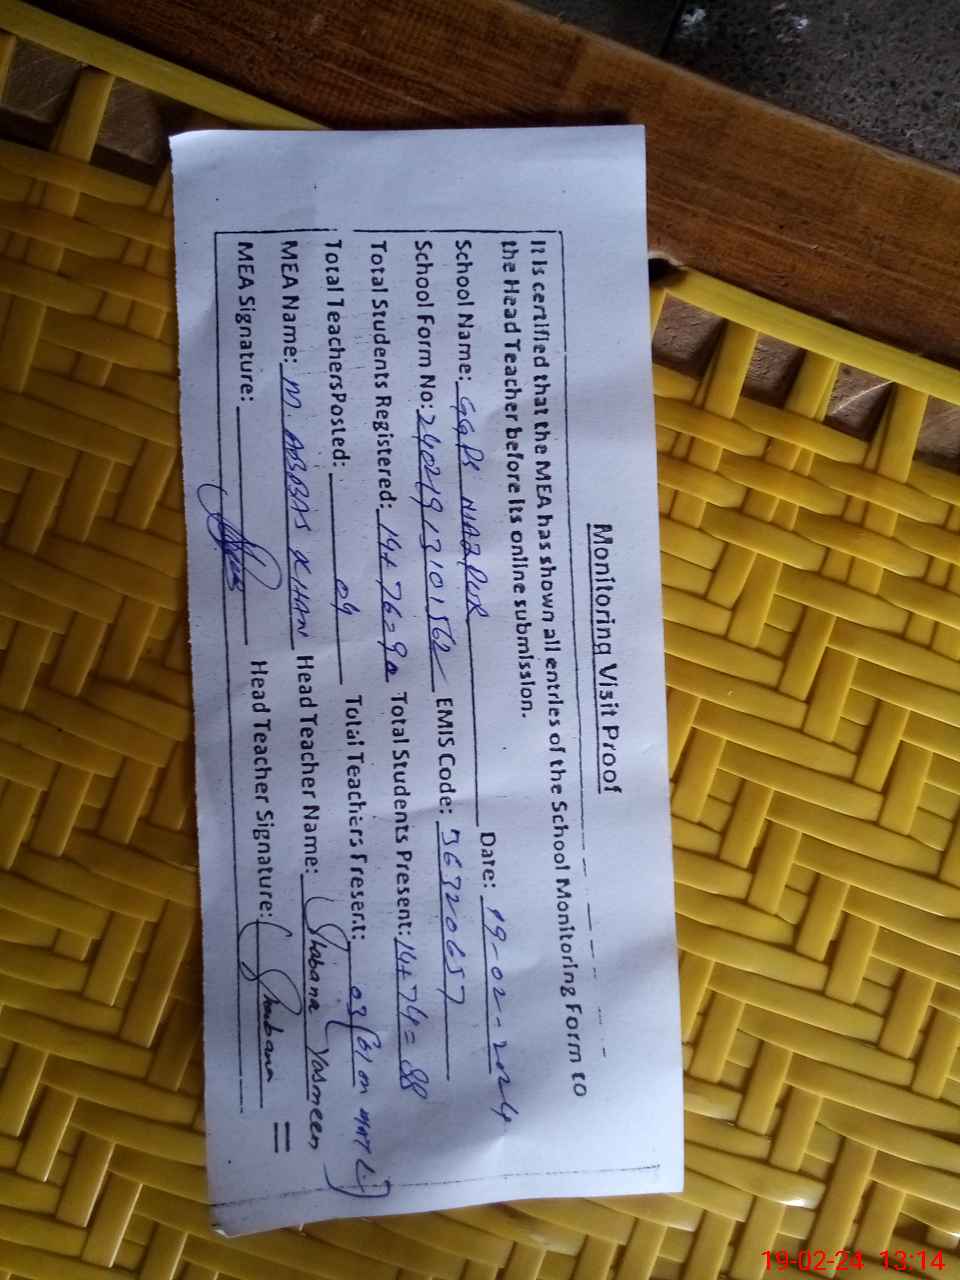 Monitoring Visit Proof
It is certified that the MEA has shown all entries of the School Monitoring Form to
the Head Teacher before its online submission.
School Name: GGPS NIAZPUR Date: 19-02-2024
School Form No: 24021913101562 EMIS Code: 36720657
Total Students Registered: 14+76=90 Total Students Present: 14+74=88
Total Teachers Posted: 04 Total Teachers Present: 03 (01 on MAT L:)
MEA Name: M. ABBAS KHAN Head Teacher Name: Shabana Yasmeen
MEA Signature: Head Teacher Signature: Shabana
19-02-24 13:14